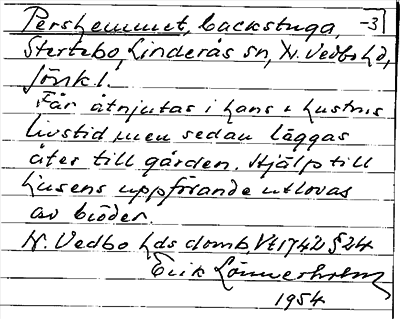 Pershemmet, backstuga, -3
Stertebo, Linderås sn, N. Vedbo hd,
Jönk l.
Får åtnjutas i hans & hustrus
livstid men sedan läggas
åter till gården. Hjälp till
husens uppförande utlovas
av bröder.
N. Vedbo hds domb. Vt 1742 § 24
Erik Lönnerholm
1954